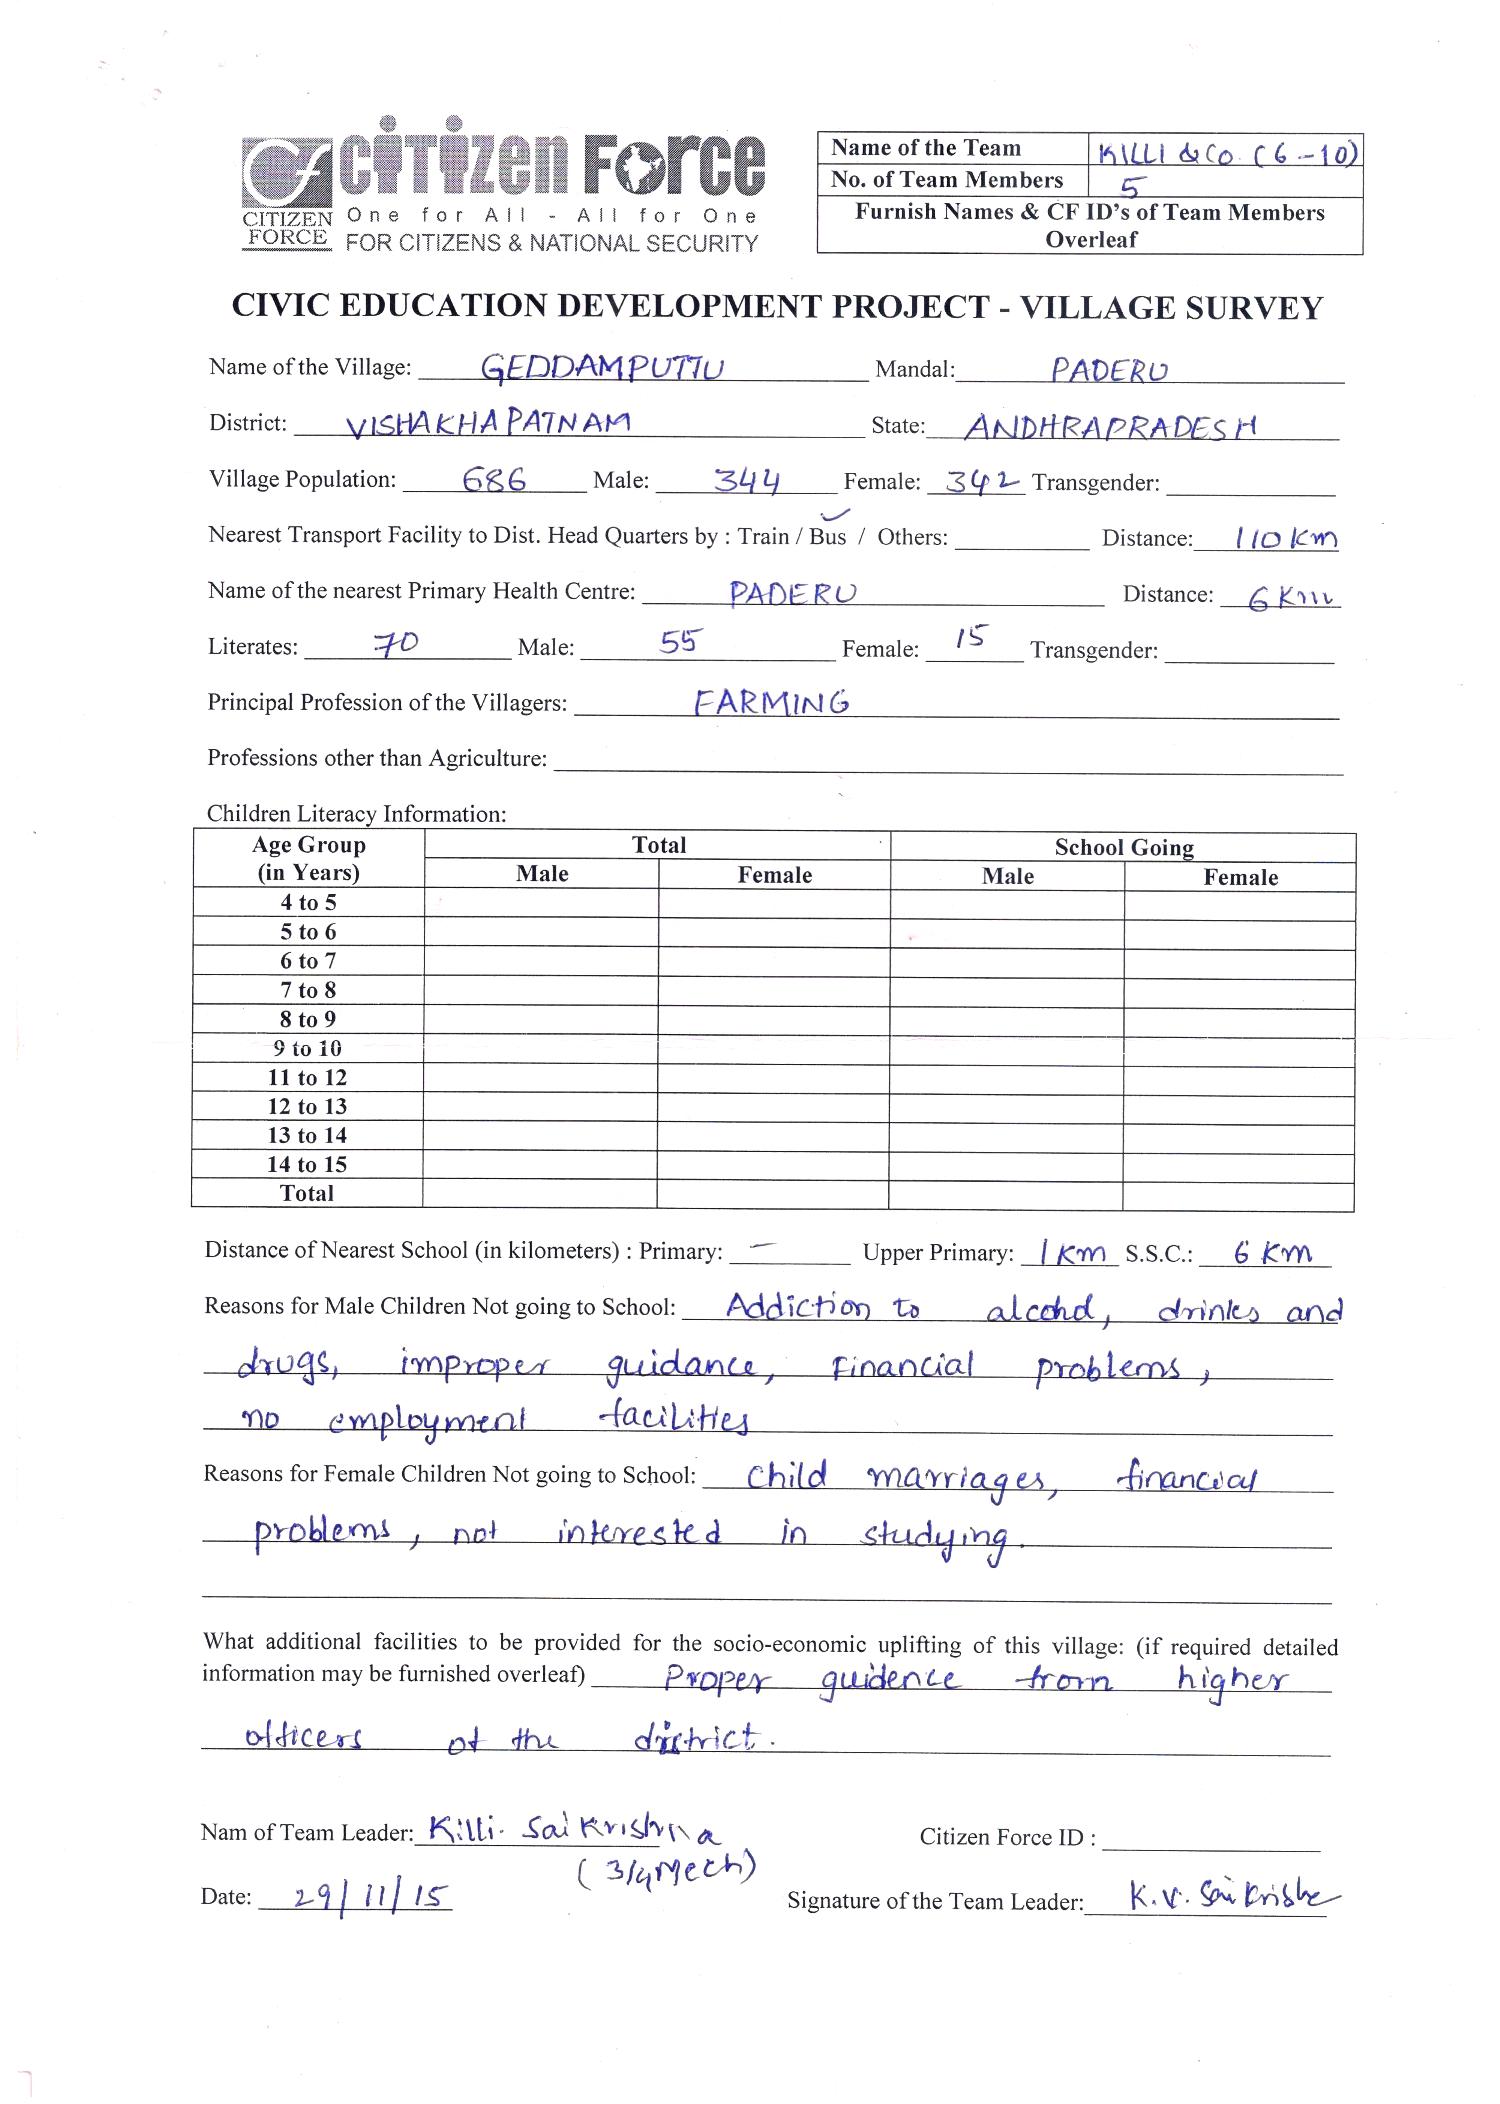 Cf CiTiZen Force
CITIZEN FORCE
One for All - All for One
FOR CITIZENS & NATIONAL SECURITY
Name of the Team KILLI & CO (6-10)
No. of Team Members 5
Furnish Names & CF ID's of Team Members
Overleaf
CIVIC EDUCATION DEVELOPMENT PROJECT - VILLAGE SURVEY
Name of the Village: GEDDAMPUTTU Mandal: PADERU
District: VISHAKHAPATNAM State: ANDHRAPRADESH
Village Population: 686 Male: 344 Female: 342 Transgender:
Nearest Transport Facility to Dist. Head Quarters by : Train / Bus / Others: Distance: 110 km
Name of the nearest Primary Health Centre: PADERU Distance: 6 Km
Literates: 70 Male: 55 Female: 15 Transgender:
Principal Profession of the Villagers: FARMING
Professions other than Agriculture:
Children Literacy Information:
Age Group (in Years) Total School Going
Male Female Male Female
4 to 5
5 to 6
6 to 7
7 to 8
8 to 9
9 to 10
11 to 12
12 to 13
13 to 14
14 to 15
Total
Distance of Nearest School (in kilometers) : Primary: — Upper Primary: 1 KM S.S.C.: 6 KM
Reasons for Male Children Not going to School: Addiction to alcohol, drinks and
drugs, improper guidance, Financial problems,
no employment facilities
Reasons for Female Children Not going to School: child marriages, financial
problems, not interested in studying.
What additional facilities to be provided for the socio-economic uplifting of this village: (if required detailed
information may be furnished overleaf) Proper guidence from higher
officers of the district.
Nam of Team Leader: Killi. Sai Krishna Citizen Force ID :
(3/4 Mech)
Date: 29/11/15 Signature of the Team Leader: K.V. Sai Krishna